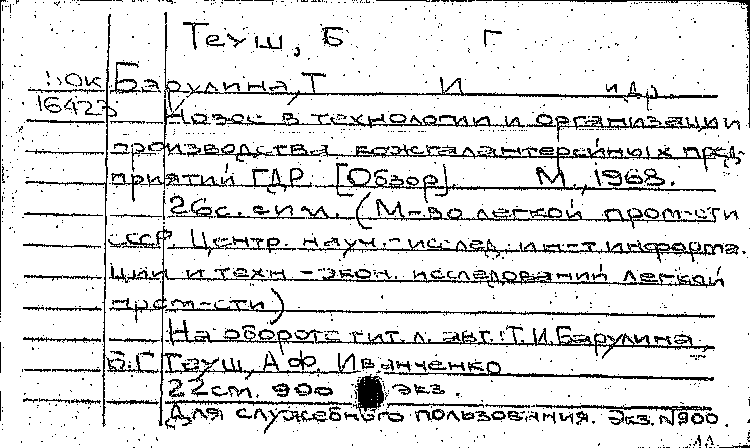 Теуш, Б Г
Барулина, Т И и др.
16423 Новое в технологии и организации
производства кожгалантерейных пред-
приятий ГДР. [Обзор]. М., 1968.
26с. с ил. (М-во легкой пром-сти
СССР. Центр. науч.-исслед. ин-т информа-
ции и техн-экон. исследований легкой
пром-сти)
На обороте тит. л. авт.: Т.И. Барулина,
Б.Г. Теуш, А.Ф. Иванченко
22см. 900 экз.
Для служебного пользования. Экз. N900.